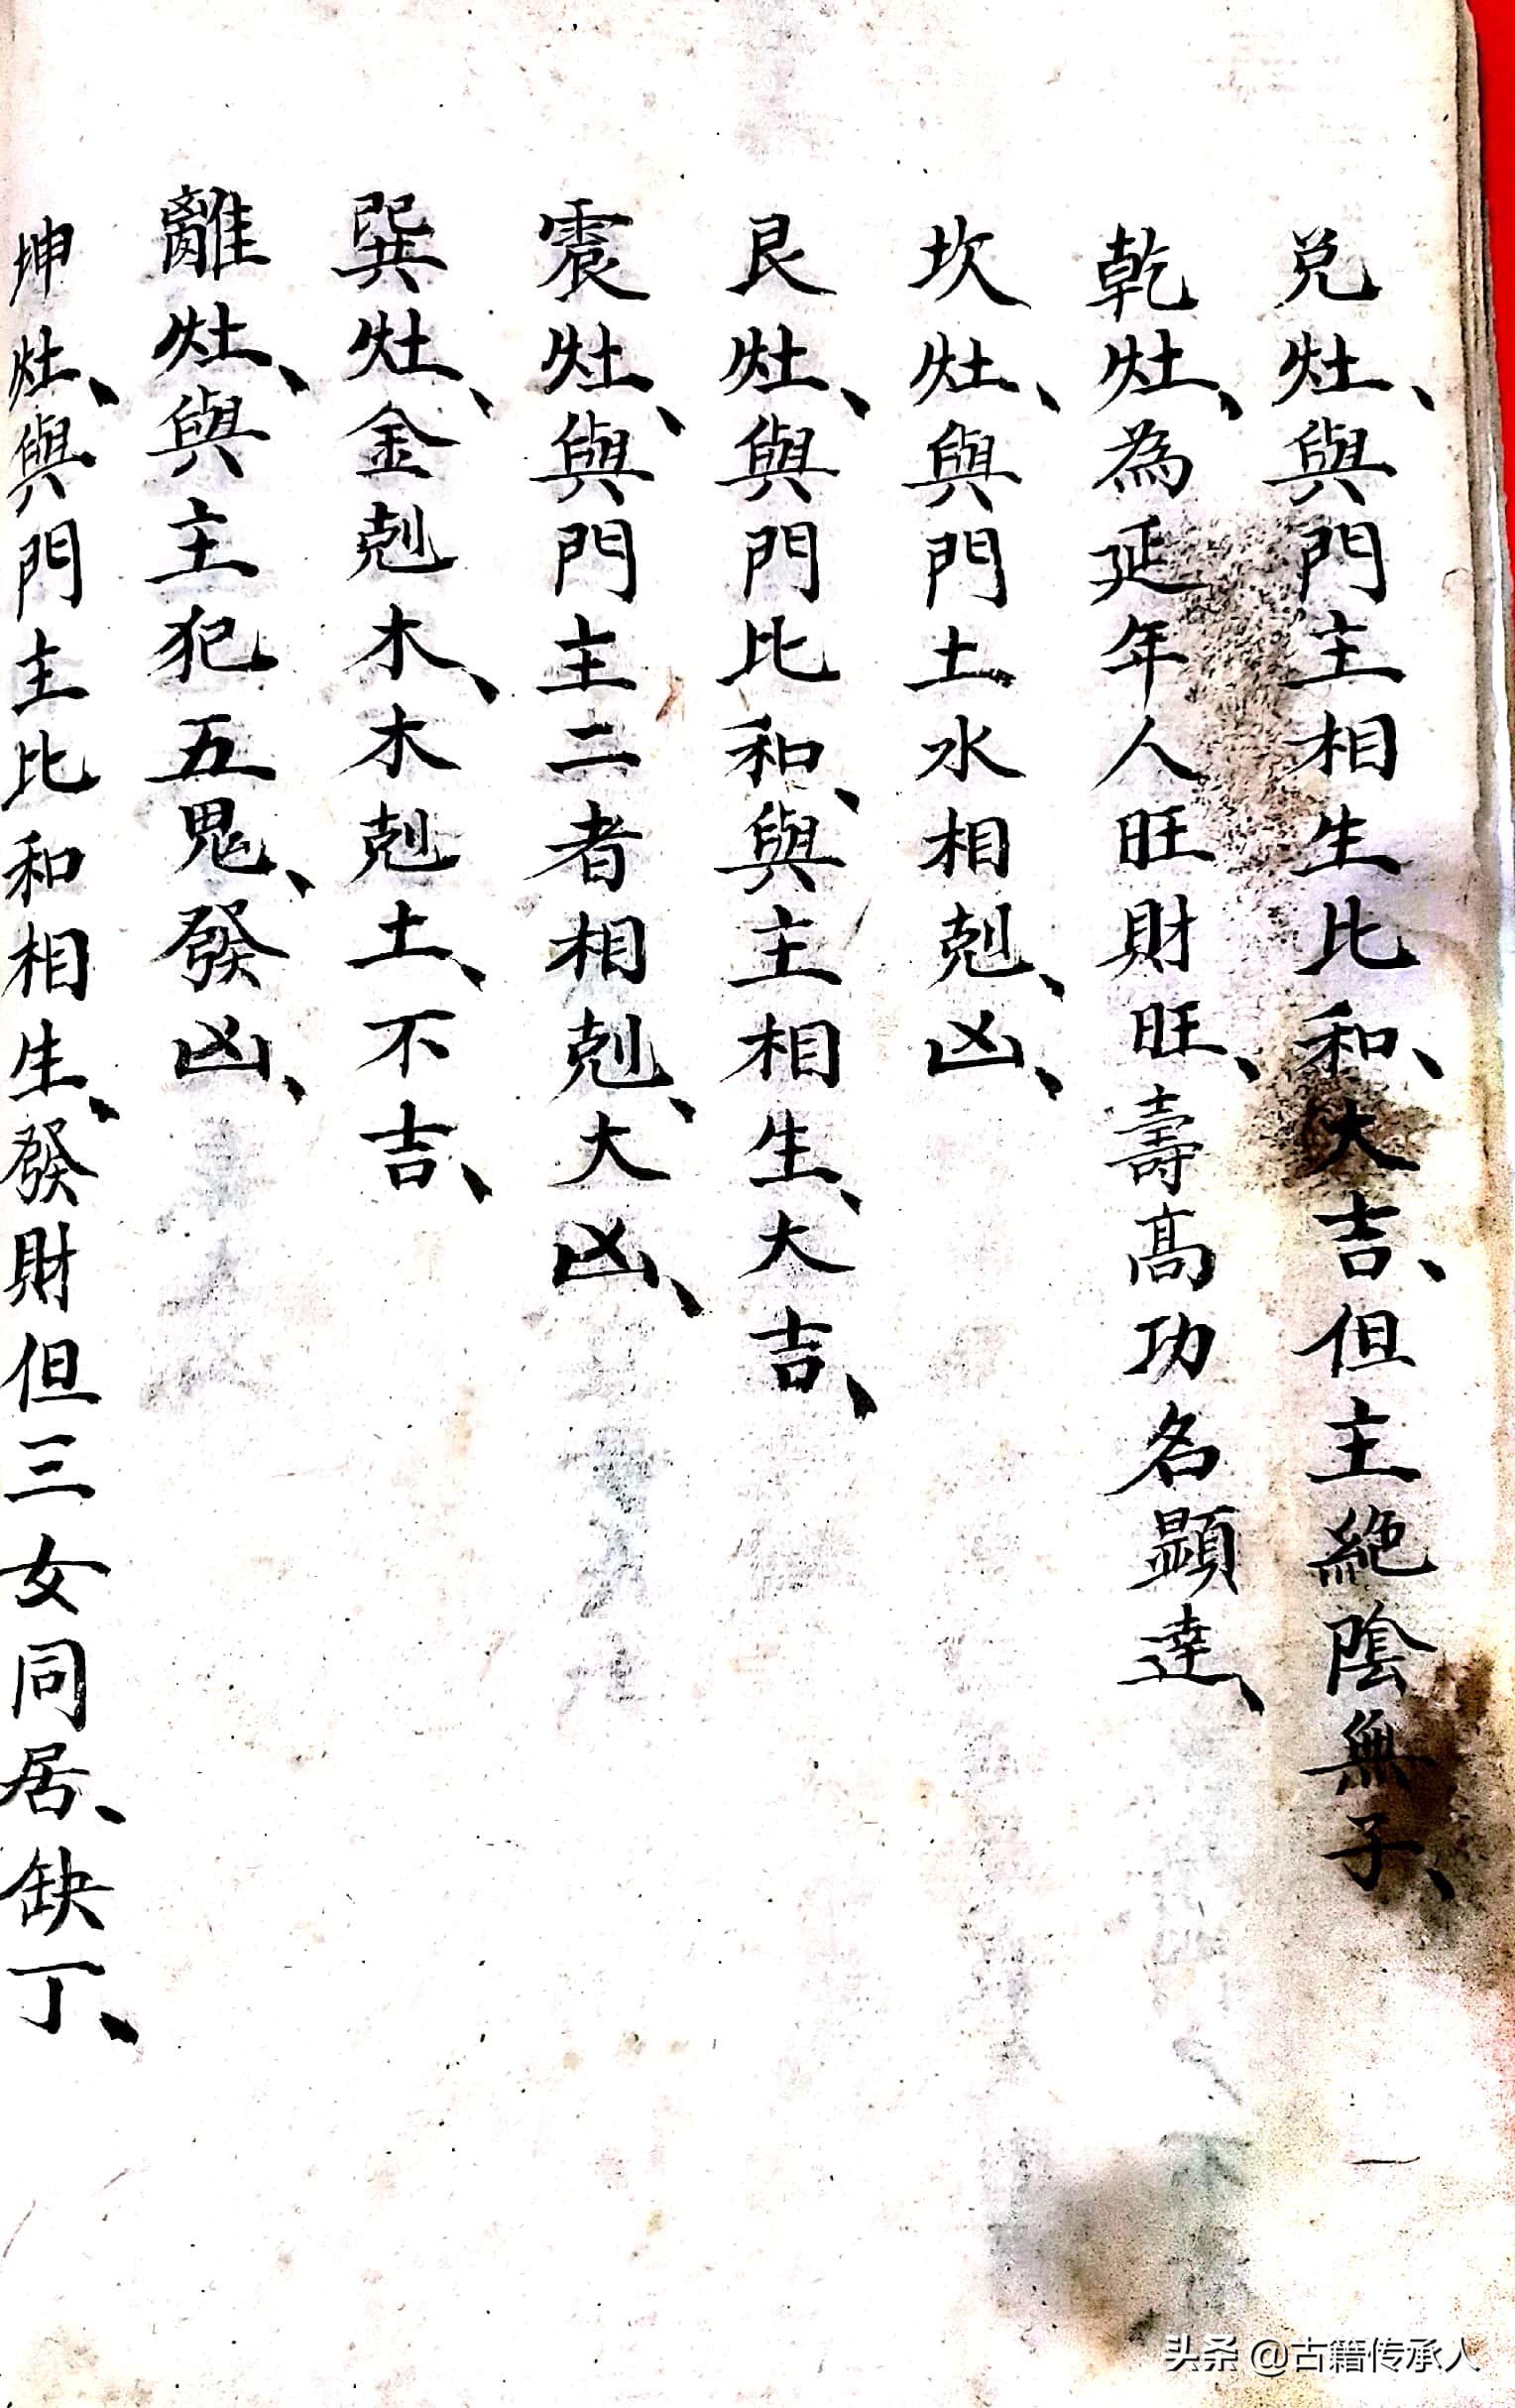 兑灶、與門主相生比和、大吉、但主絕陰無子、
乾灶、為延年人旺財旺、壽髙功名顕達、
坎灶、與門土水相剋、凶、
艮灶、與門比和、與主相生、大吉、
震灶、與門主二者相剋、大凶、
巽灶、金剋木、木剋土、不吉、
離灶、與主犯五鬼、發凶、
坤灶、與門主比和相生、發財但三女同居、缺丁、
头条 @古籍传承人